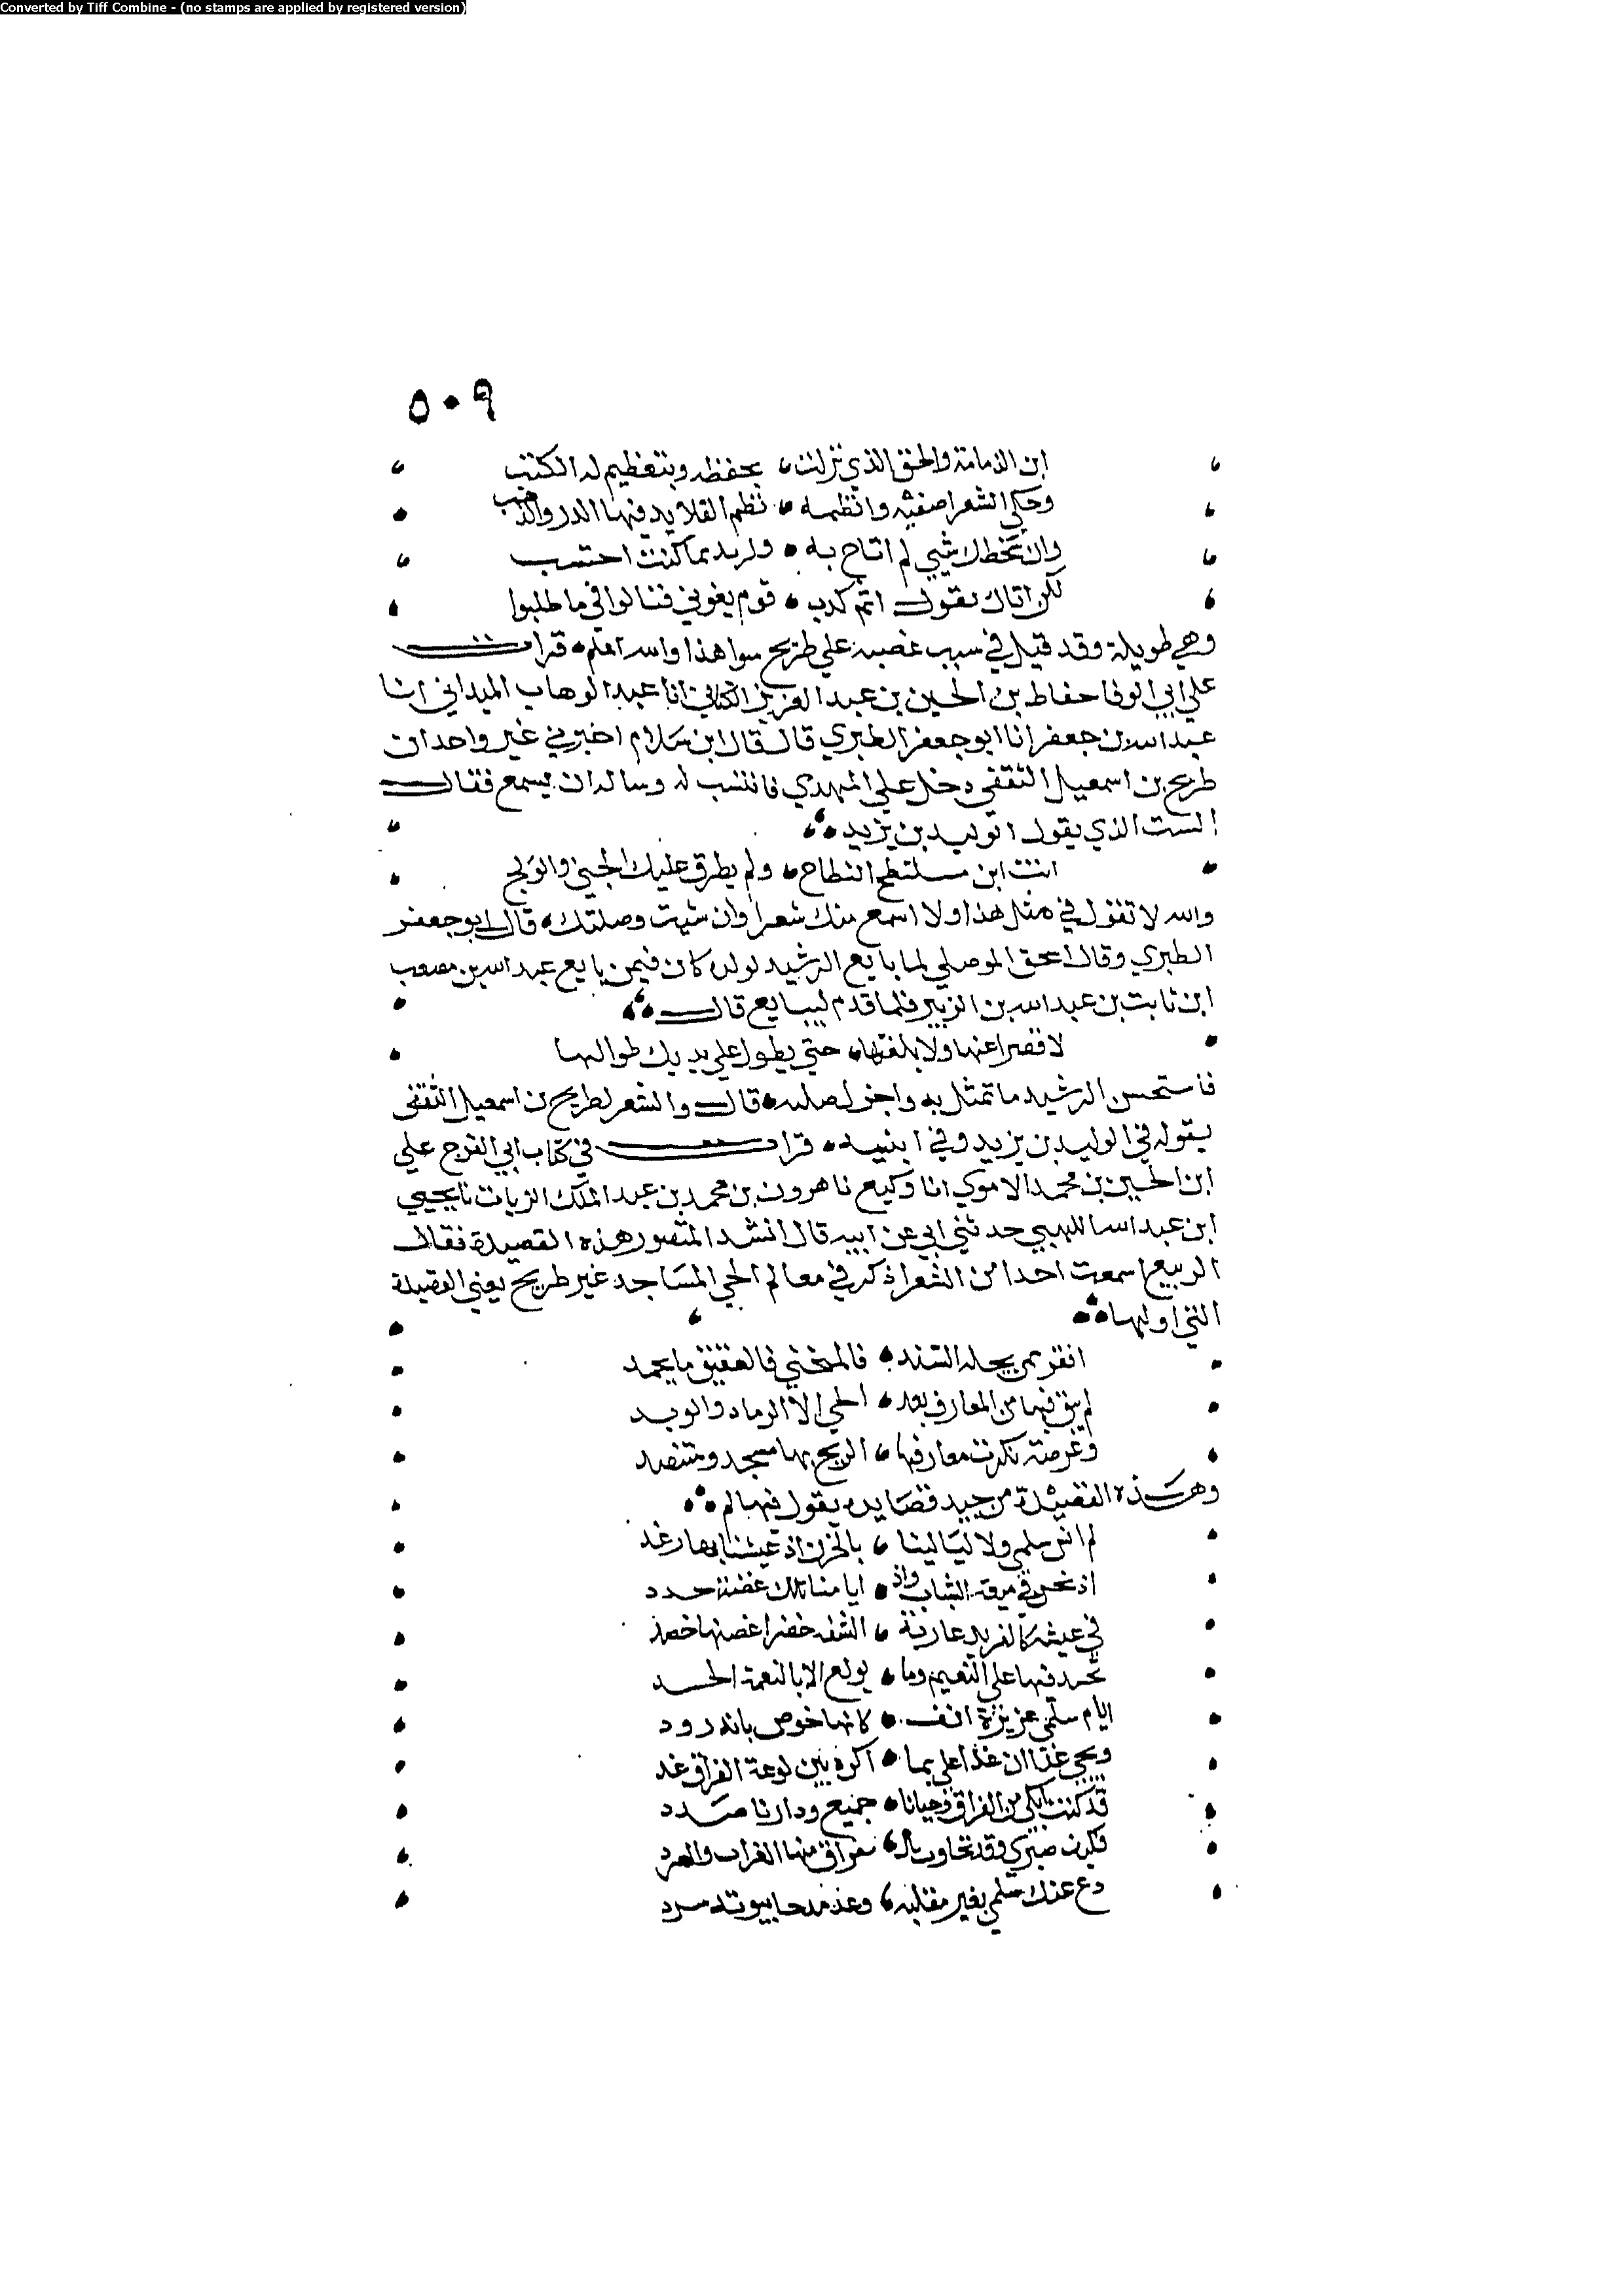 Converted by Tiff Combine - (no stamps are applied by registered version)
٥٠٩
ابن الذمامة والحق الذي نزلت بحفظه وبتعظيم له الكتب
وحكي الشعر اصفيه وانظمه نظم القلايد فيها الدر والذهب
وان سخطك شيي لم اناج به ولريد مما كنت احتسب
لكن اتاك بقول اثم كذب قوم بغوني فنالوا في ما طلبوا
وهي طويلة وقد قيل في سبب غضبه علي طريح سوا هذا والله اعلم قرات
علي ابي الوفا حفاظ بن الحسين بن عبد العزيز الكتاني انا عبد الوهاب الميداني انا
عبد الله بن جعفر انا ابو جعفر الطبري قال قال ابن سلام اخبرني غير واحد ان
طريح بن اسمعيل الثقفي دخل علي المهدي فانتسب له وساله ان يسمع فقال
الست الذي يقول الوليد بن يزيد
انت ابن مسلنطح البطاح ولم يطرق عليك الحني والولج
والله لا تقول في مثل هذا ولا اسمع منك شعرا وان شيت وصلتك قال ابو جعفر
الطبري وقال اسحق الموصلي لما بايع الرشيد لولده كان فيمن بايع عبد الله بن مصعب
ابن ثابت بن عبد الله بن الزبير فلما قدم ليبايع قال
لا قصرا عنها ولا بلغتها حتي يطول علي يديك طوالها
فاستحسن الرشيد ما تمثل به واجزل صلته قال والشعر لطريح بن اسمعيل الثقفي
يقوله في الوليد بن يزيد وفي ابنيه قرات في كتاب ابي الفرج علي
ابن الحسين بن محمد الاموي انا وكيع نا هرون بن محمد بن عبد الملك الزيات نا يحيي
ابن عبد الله اللهبي حدثني ابي عن ابيه قال انشد المنصور هذه القصيدة فقال
الربيع اسمعت احدا من الشعرا ذكر في معالم الحي المساجد غير طريح يعني القصيدة
التي اولها
اقفر ممن يحله السند فالمنحني فالعقيق ما يحمد
لم يبق فيها من المعارف بعد الحي الا الرماد والوتد
وعرصة نكرت معارفها الريح بها مسجد ومنتضد
وهذه القصيدة من جيد قصايده يقول فيها
لم انس سلمي ولا ليالينا بالحزن اذ عيشنا بها رغد
اذ نحن في ميعة الشباب واذ ايامنا تلك غضة جدد
في عيشة كالفريد عازبة الشقوة خضرا غصنها خضد
نحسد فيها علي النعيم وما يولع الا بالنعمة الحسد
ايام سلمي غزيرة انف كانها خوص بانه رود
ويحي غدا ان غدا علي بما اكره بين لوعة الفراق غد
قد كنت ابكي من الفراق وحيانا جميع ودارنا صدد
فكيف صبري وقد تجاوب بالفراق منها الغراب والصرد
دع عنك سلمي بغير مقلية وعد مدحا بيوته سرد